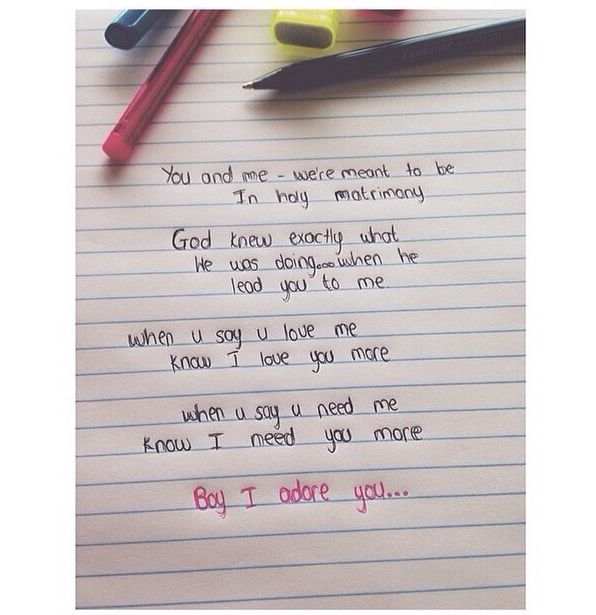 You and me - we're meant to be
In holy matrimony
God knew exactly what
He was doing...when he
lead you to me
when u say u love me
Know I love you more
when u say u need me
Know I need you more
Boy I adore you...